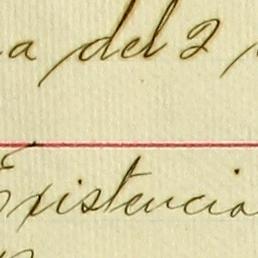 a del 2
Existencia